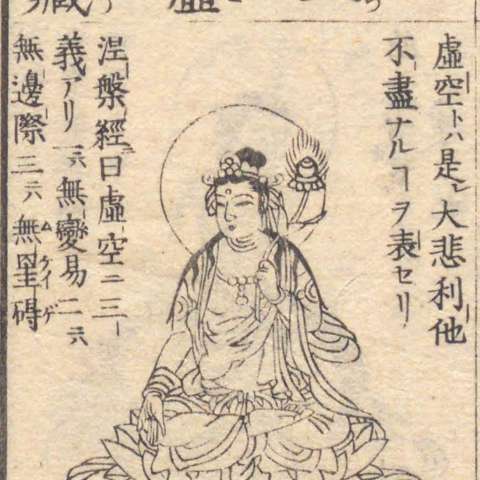 虛空トハ是レ大悲利他
不盡ナルヿヲ表セリ
涅槃經ニ曰虛空ニ三ノ
義アリ一ニハ無變易二ニハ
無邊際三ニハ無罣碍
ムケイゲ